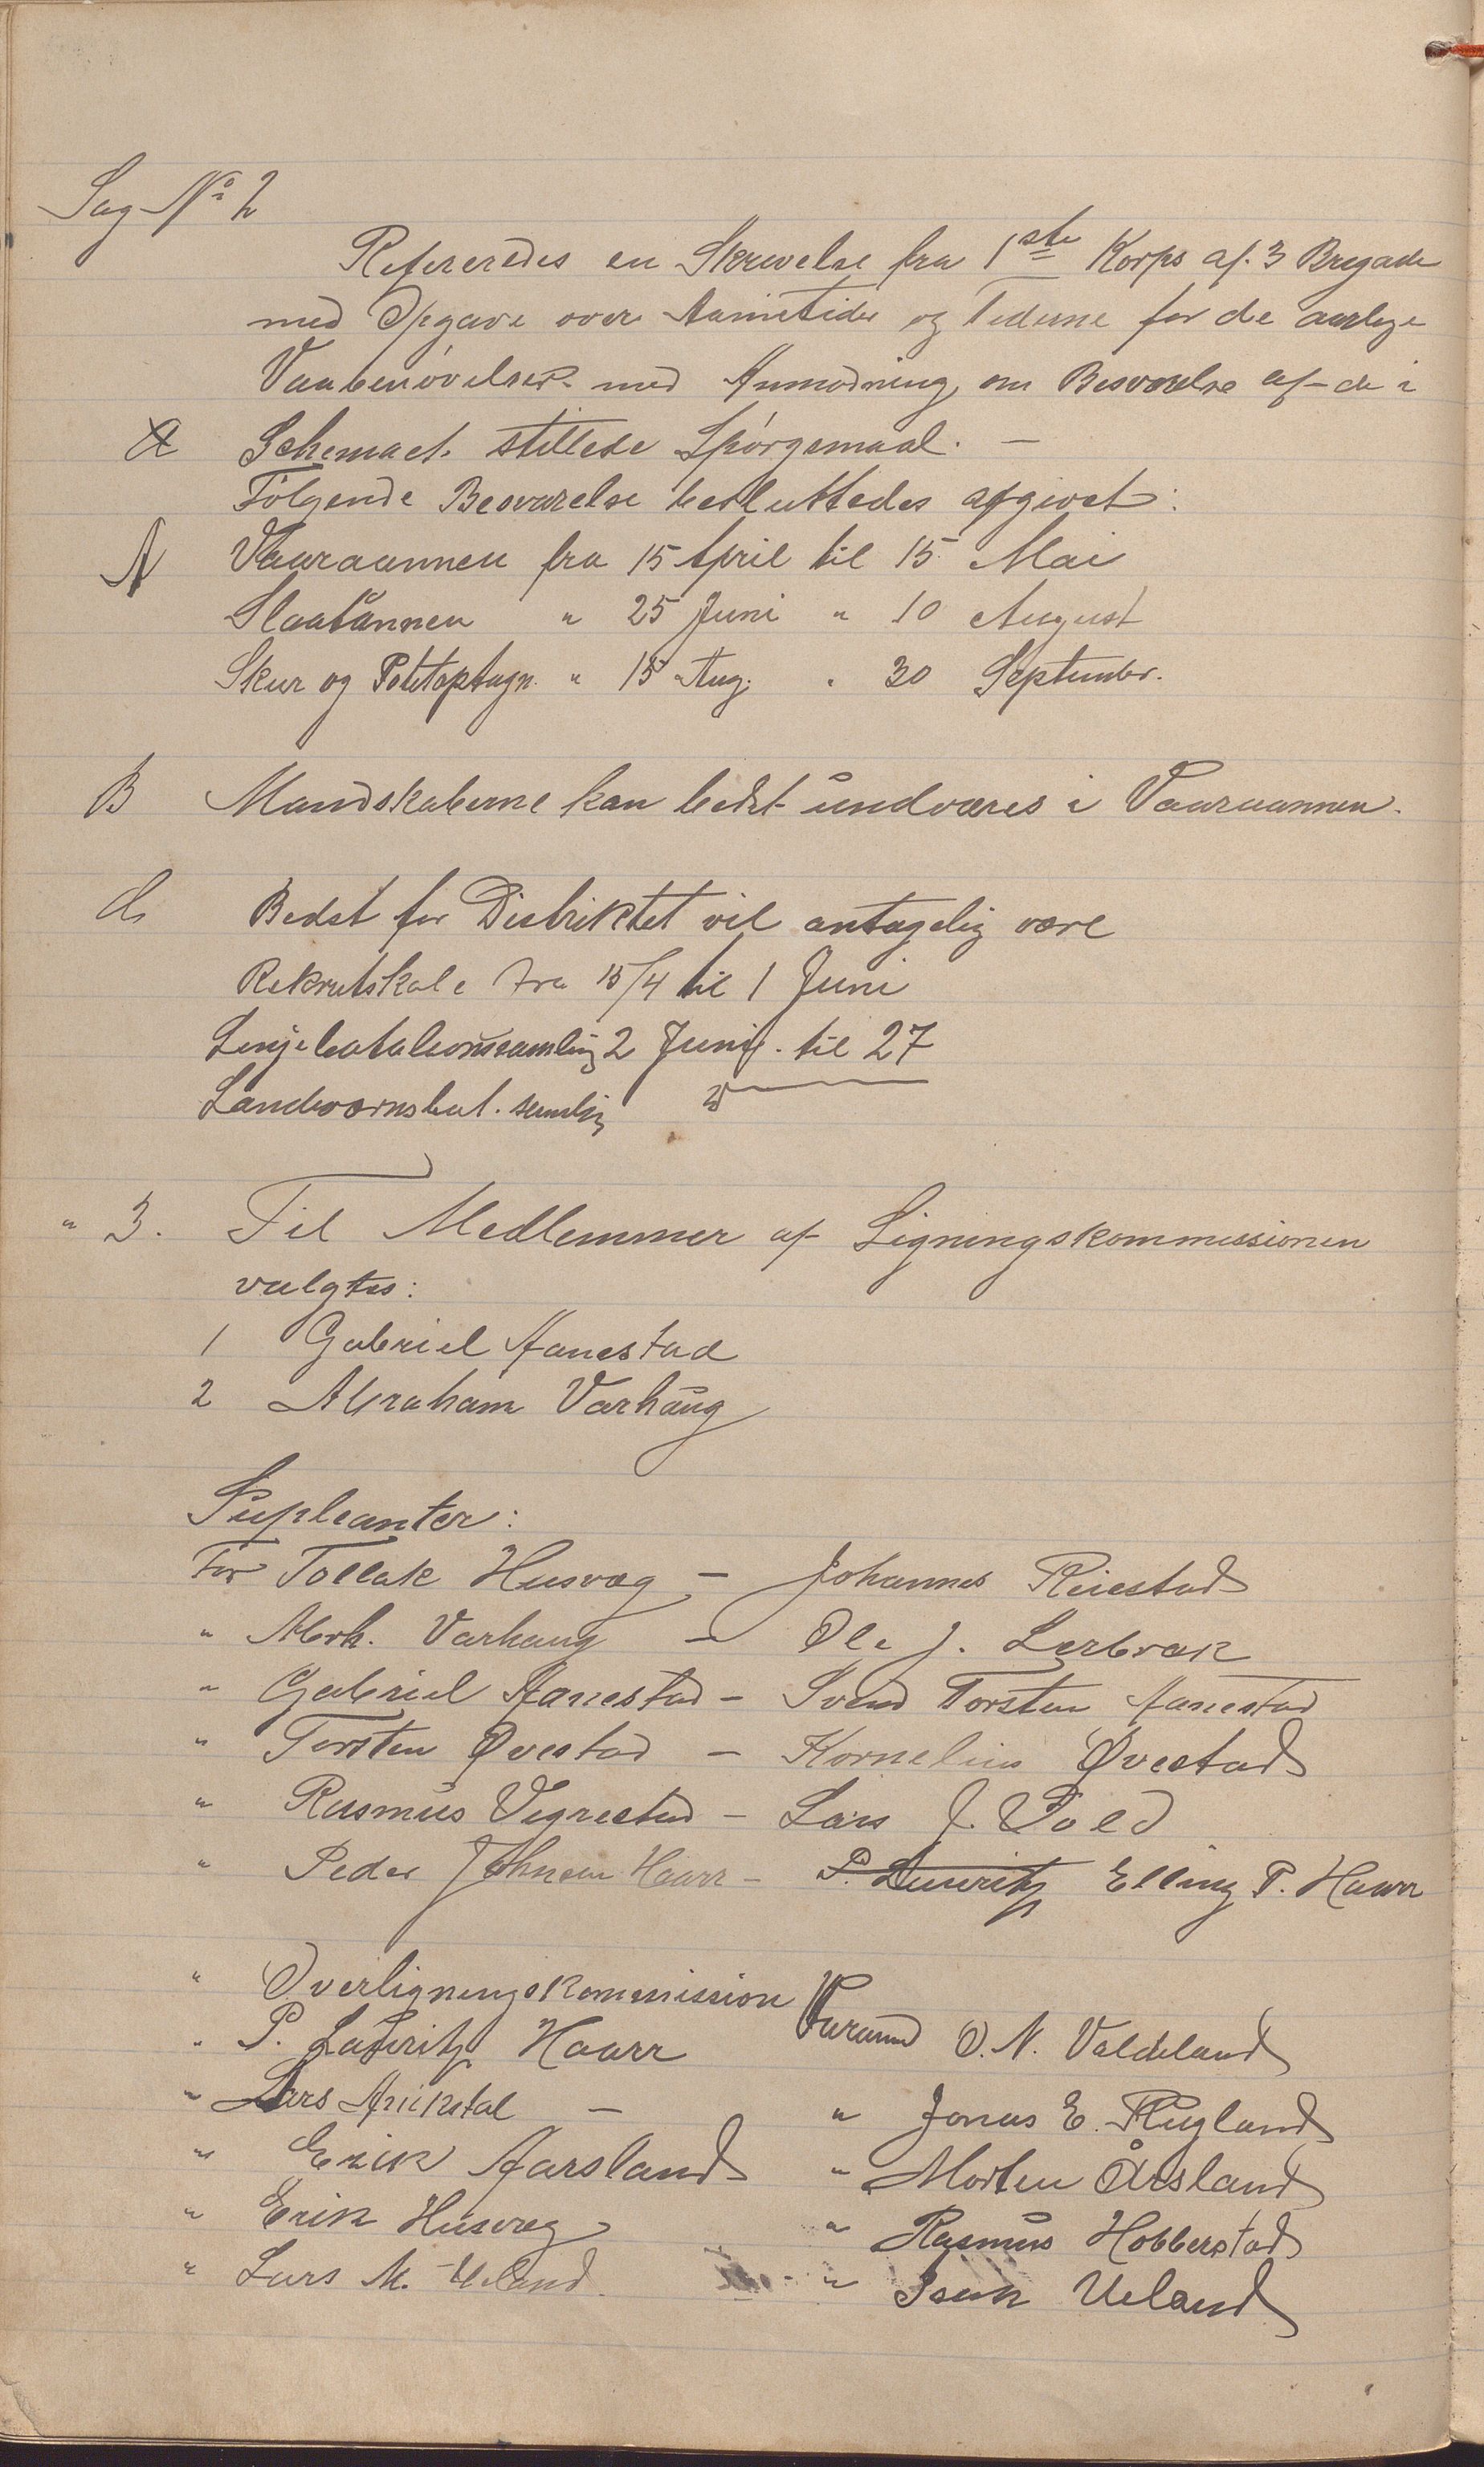 Sag No 2
Refereredes en Skrivelse fra 1ste Korps af 3 Brigade
med Opgave over Aarnetider og Tiderne for de aarlige
Vaabenøvelser med Anmodning om Besvarelse af de i
Schemaet stillede Spørgsmaal. —
Følgende Besvarelse besluttedes afgivet:
A Vaaraannen fra 15 April til 15 Mai
Slaataannen " 25 Juni " 10 August
Skur og Potetoptagn. " 15 Aug. " 30 September.
B Mandskaberne kan bedst undværes i Vaaraannen.
C. Bedst for Distriktet vil antagelig være
Rekrutskole fra 15/4 til 1 Juni
Linjebataljonssamling 2 Juni til 27
Landværnsbat. samling
" 3. Til Medlemmer af Ligningskommissionen
valgtes:
1 Gabriel Aanestad
2 Abraham Varhaug
Supleanter:
For Tollak Husvæg – Johannes Reiestad
" Abrh. Varhaug – Ole J. Lerbræk
" Gabriel Aanestad – Svend Torsten Aanestad
" Torsten Øvestad – Kornelius Øvestad
" Rasmus Vigrestad – Lars J. Vold
" Peder Johnsen Haarr – P. Lauritz Elling P. Haarr
" Overligningskommission
" P. Lauritz Haarr Varamd O. N. Valdeland
" Lars Aniksdal – " Jonas E. Rugland
" Erik Aarsland " Morten Årsland
" Erik Husvæg " Rasmus Hobberstad
" Lars M. Ueland " Isak Ueland